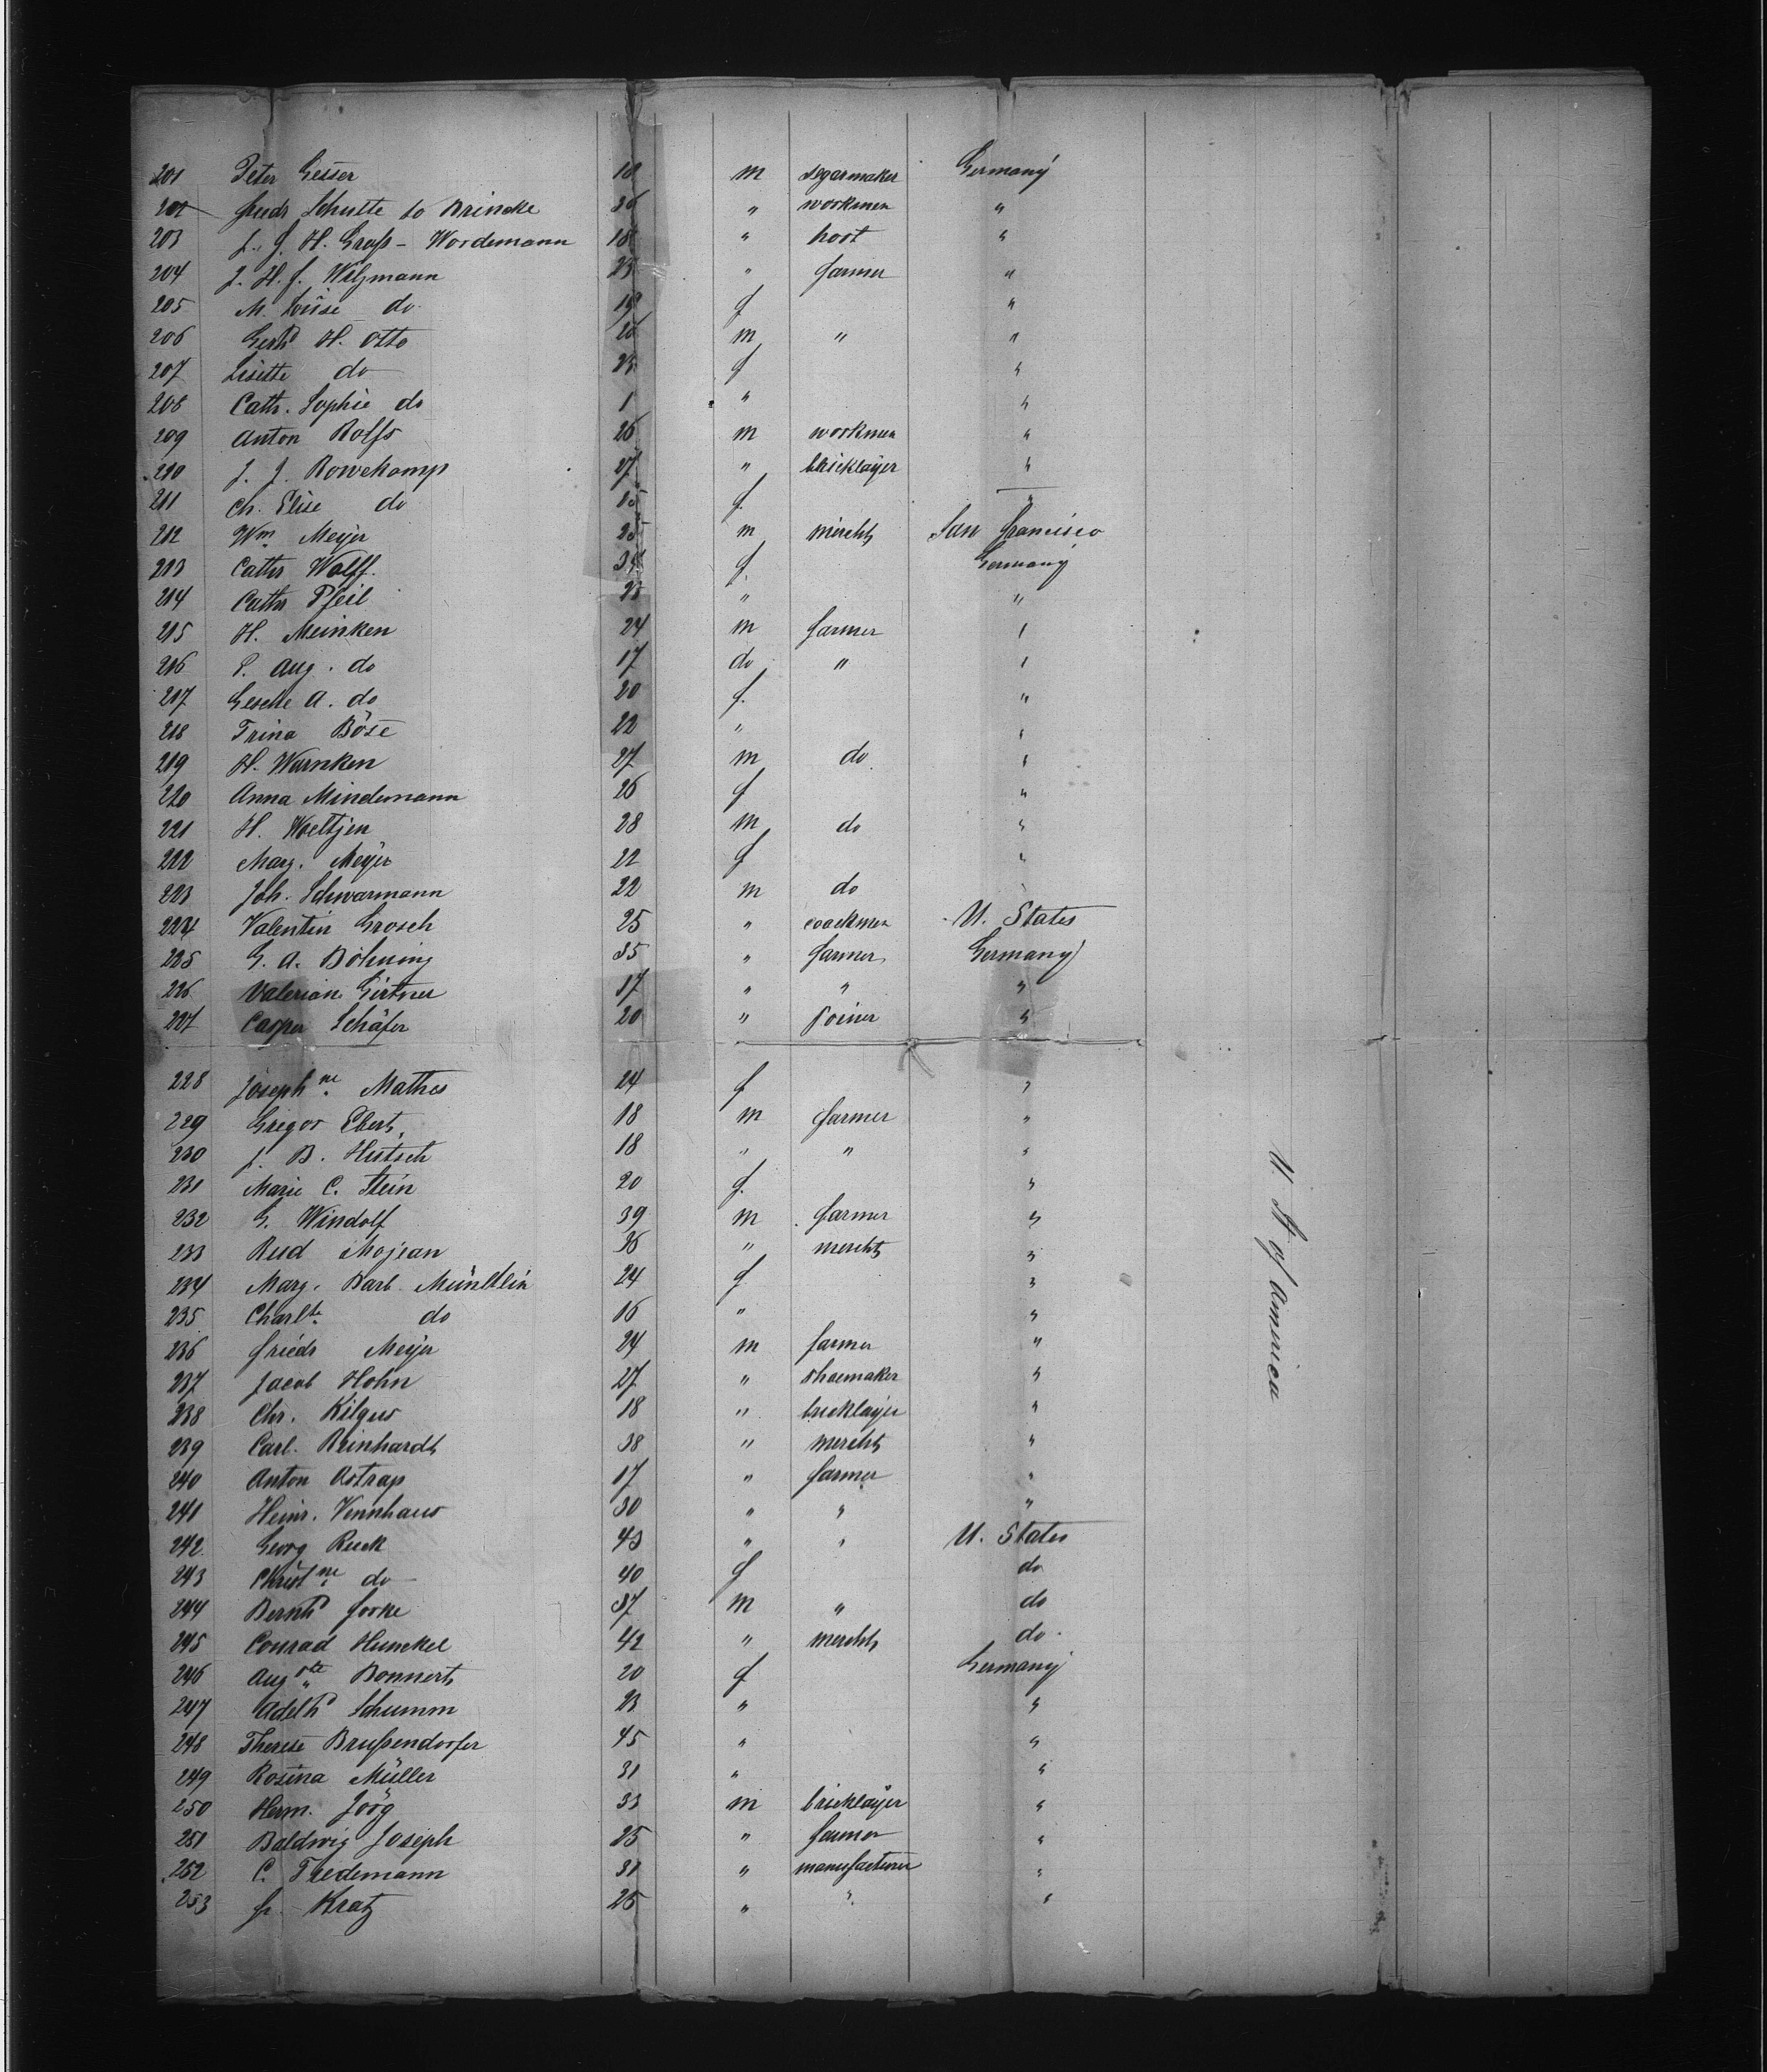 201 Peter Gesser 18 m segarmaker Germany
202 Friedr Schulte to Brincke 36 " workmen "
203 J. J. H. Groß - Wordemann 18 " "
204 J. H. J. Wilzmann 23 " farmer "
205 M. Louise do 19 f "
206 Gerhd H. Otto 26 m " "
207 Lisette do 23 f "
208 Cath. Sophie do 1 " "
209 Anton Rolfs 26 m workmen "
210 J. J. Rowekamp 27 " bricklayer "
211 Ch. Elise do f "
212 Wm Meyer 25 m mercht San Francisco
213 Cathr Wolff 34 f. Germany
214 Cathr Pfeil 23 " "
215 H. Meinken 24 m farmer "
216 P. Aug. do 17 do " "
217 Gesche A. do 20 f. "
218 Trina Böse 22 " "
219 H. Warnken 27 m do "
220 Anna Mindemann 26 f "
221 H. Woeltjen 28 m do "
222 Marg. Meyer 22 f "
223 Joh. Schwarmann 22 m do "
224 Valentin Grosch 25 " coackmen U. States
225 G. A. Böhning 35 " farmer Germany
226 Valerian Girtner 17 " " "
227 Casper Schäfer 20 " Joiner "
228 Josephne Mathes 24 f "
229 Gregor Ebert 18 m farmer "
230 J. B. Hutsch 18 " " "
231 Marie C. Stein 20 f. "
232 G. Windolf 39 m farmer "
233 Rud Mojean 36 " mercht "
234 Marg. Barb. Münltlin 24 f "
235 Charlte do 16 " "
236 Friedr Meyer 24 m farmer "
237 Jacob Hohn 27 " shoemaker "
238 Chr. Kilgus 18 " bricklayer "
239 Carl. Reinhardt 38 " mercht "
240 Anton Astrap 17 " farmer "
241 Heinr. Vennhaus 30 " " "
242 Georg Ruck 43 " " U. States
243 Christne do 40 f do
244 Bernhd Jorke 37 m " do
245 Conrad Hunckel 42 " mercht do
246 Augste Bonnert 20 f Germany
247 Adelhd Schumm 23 " "
248 Therese Brußendorfer 45 " "
249 Rosina Müller 31 " "
250 Herm. Joög 33 m bricklayer "
251 Baldwig Joseph 25 " farmer "
252 C. Tiedemann 31 " manufacturer "
253 Fr. Kratz 26 " " "
U. St of America